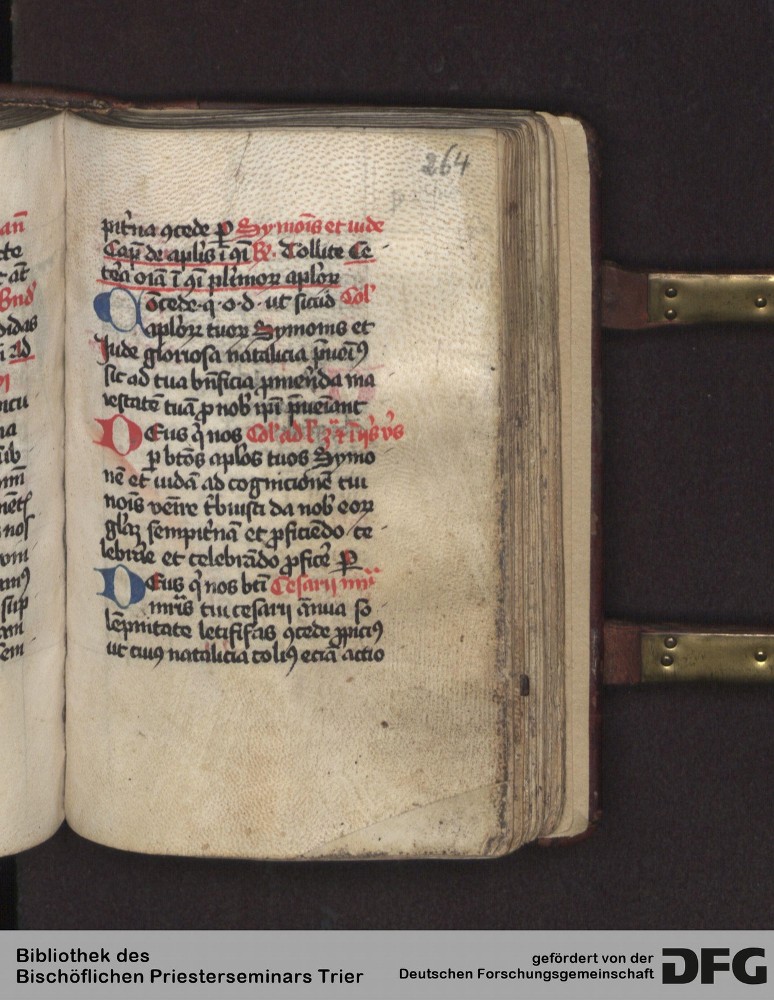 264
pit̄na ꝯcede ꝑ Symoīs et iude
Cap̄ de apl̄is ī qͥ ℟. Tollite Ce
tēa oīa ī qͥ pl̄imoꝝ aplōꝝ
Oc̄cede q̄ o d ut sicud Col'
aplōꝝ tuoꝝ Symonis et
Jude gloriosa natalicia
sic ad tua bn̄ficia ꝓmeren̄da ma
iestatē tuā ꝓ nob' ip̄i p̄ueiant
DEus q̄ nos Col' ad
ꝑ btōs aplos tuos Symo
nē et iudā ad cognicionē tui
noīs venīre t̄buisti da nob' eoꝝ
gl̄aꝫ sempit̄nā et ꝓficiēdo ce
lebrar̄e et celebrādo ꝓficer̄ ꝑ
DEus q̄ nos btī Cesarij mr̄
mr̄is tui cesarij ānua so
lēpnitate letifi̅cas ꝯcede ꝓpiciꝰ
ut cuiꝰ natalicia coliꝰ eciā actio
Bibliothek des
Bischöflichen Priesterseminars Trier
gefördert von der
Deutschen Forschungsgemeinschaft
DFG